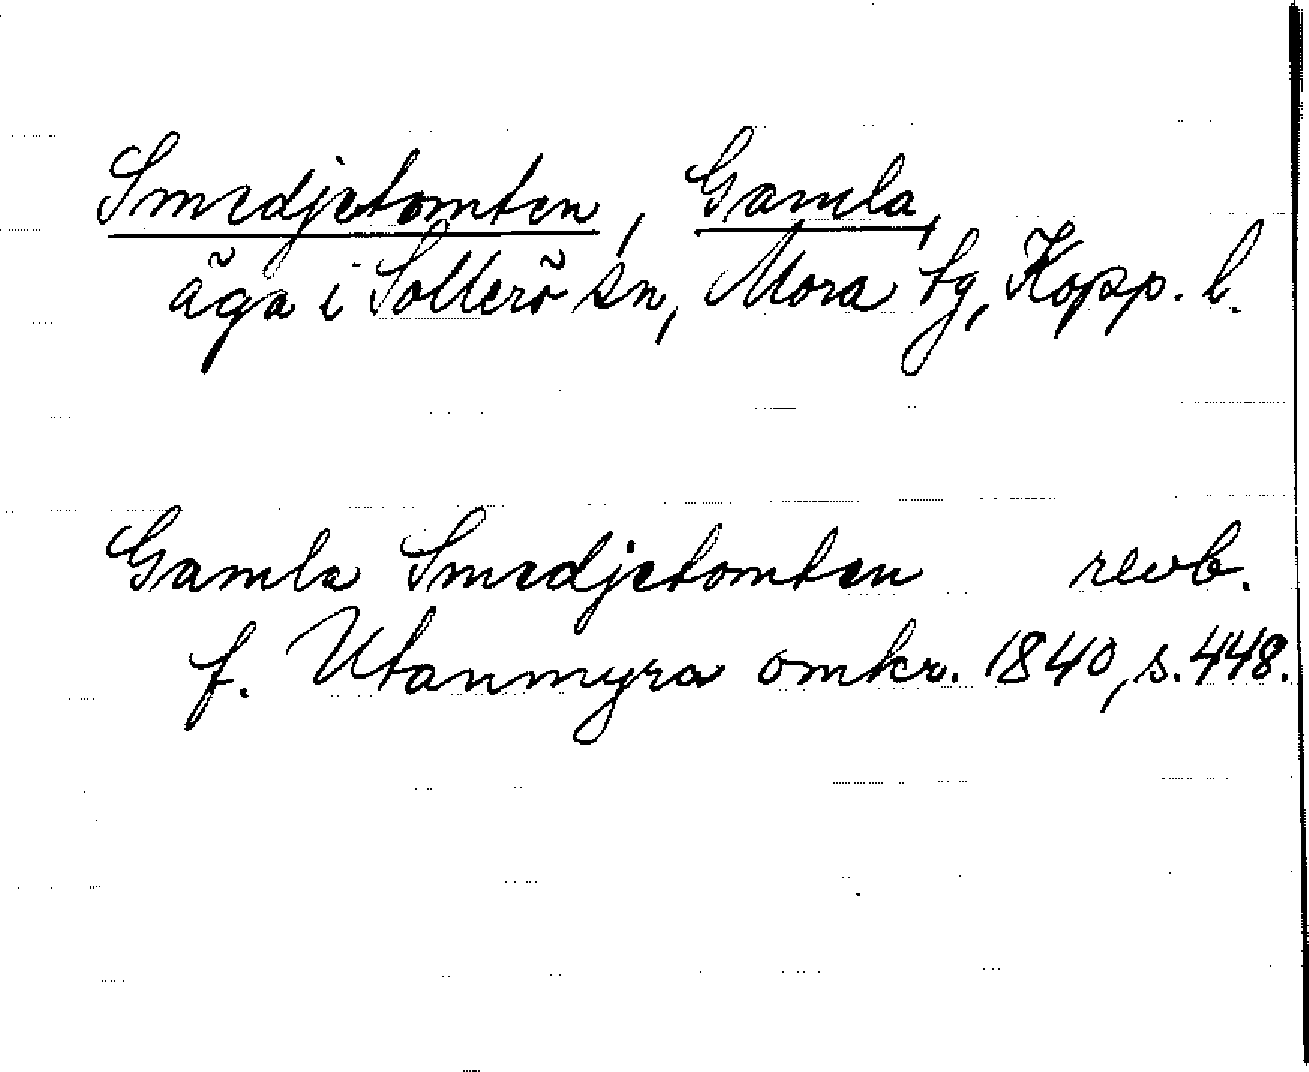 Smedjetomten, Gamla,
äga i Sollerö sn, Mora tg, Kopp. l.
Gamla Smedjetomten revb.
f. Utanmyra omkr. 1840, s. 448.